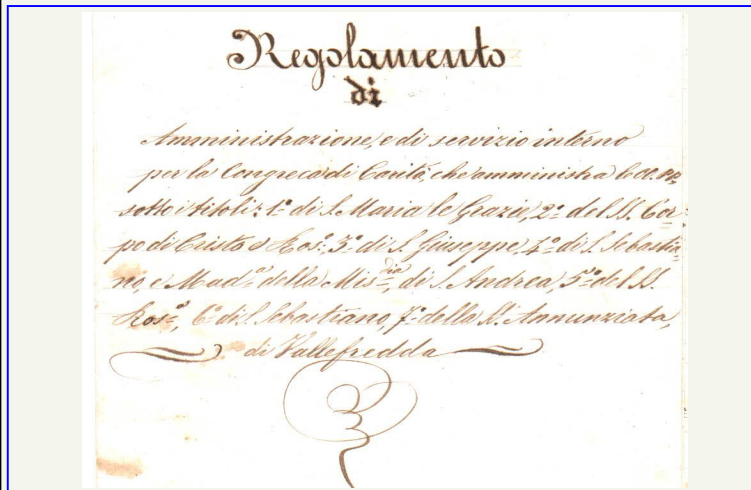 Regolamento
di
Amministrazione, e di servizio interno
per la Congrega di Carità, che amministra le OO. PP.
sotto i titoli: 1º di S. Maria le Grazie, 2º del SS. Cor-
po di Cristo e Ros.º, 3º di S. Giuseppe, 4º di S. Sebastia-
no, e Mad.ª della Mis.dia, di S. Andrea, 5º del SS.
Ros.º, 6º di S. Sebastiano, 7º della SS. Annunziata,
di Vallefredda